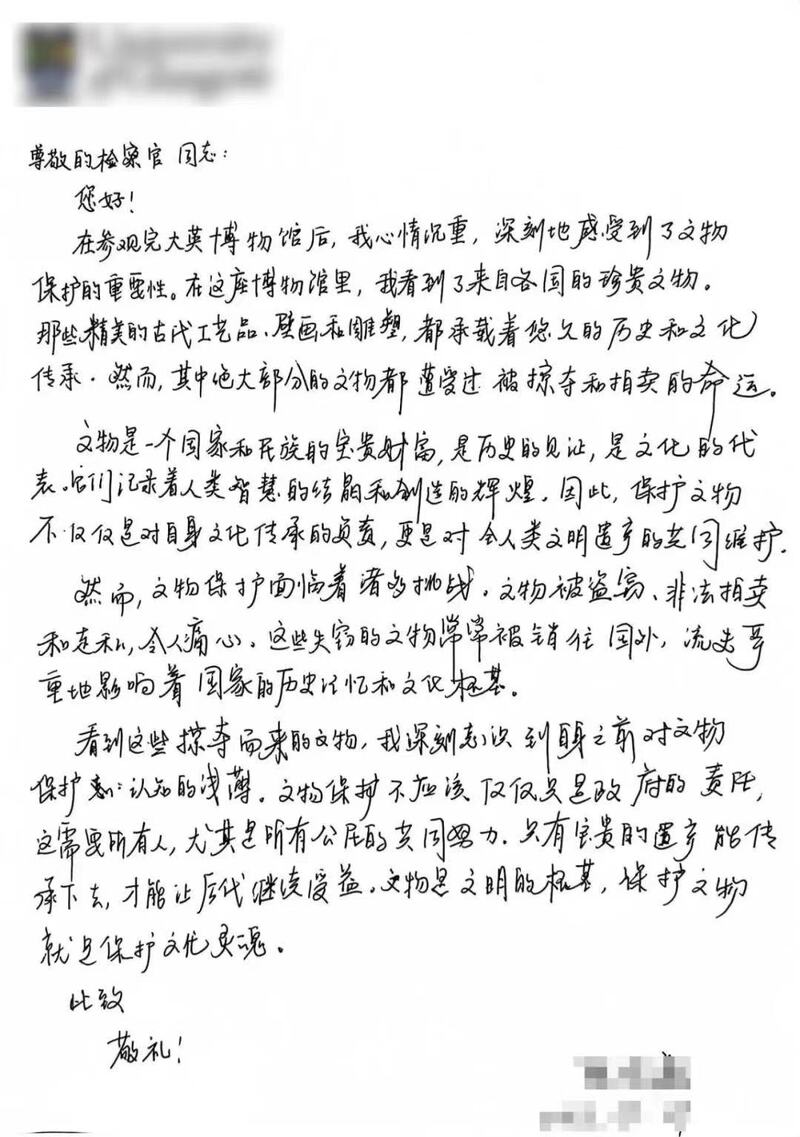 尊敬的检察官同志：
您好！
在参观完大英博物馆后，我心情沉重，深刻地感受到了文物
保护的重要性。在这座博物馆里，我看到了来自各国的珍贵文物。
那些精美的古代工艺品、壁画和雕塑，都承载着悠久的历史和文化
传承。然而，其中绝大部分的文物都遭受过被掠夺和拍卖的命运。
文物是一个国家和民族的宝贵财富，是历史的见证，是文化的代
表。它们记录着人类智慧的结晶和创造的辉煌。因此，保护文物
不仅仅是对自身文化传承的负责，更是对全人类文明遗产的共同维护。
然而，文物保护面临着诸多挑战。文物被盗窃、非法拍卖
和走私，令人痛心。这些失窃的文物常常被销往国外，流失严
重地影响着国家的历史记忆和文化根基。
看到这些掠夺而来的文物，我深刻意识到自身之前对文物
保护认知的浅薄。文物保护不应该仅仅只是政府的责任，
这需要所有人，尤其是所有公民的共同努力。只有宝贵的遗产能传
承下去，才能让后代继续受益。文物是文明的根基，保护文物
就是保护文化灵魂。
此致
敬礼！